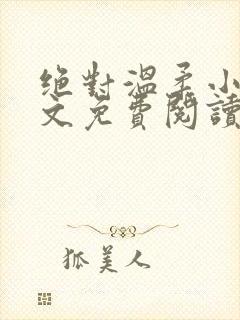 絕對溫柔小
文免費閱讀
狐美人